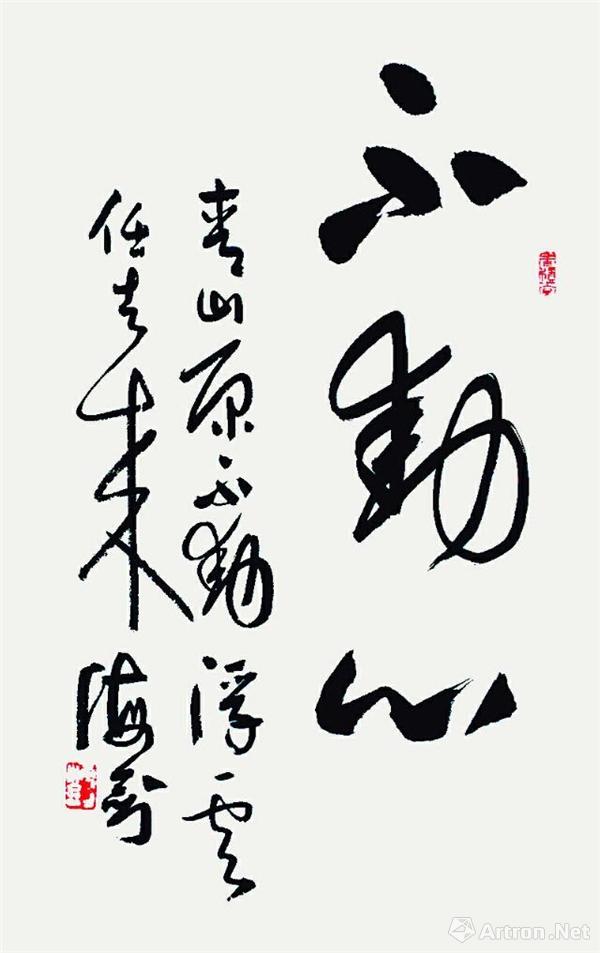 不動心
青山原不動浮雲
任去来海
Artron.Net